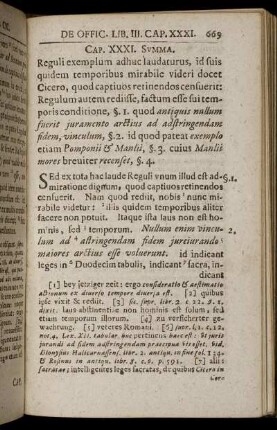 DE OFFIC. LIB. III. CAP. XXXI. 669
CAP. XXXI. SVMMA.
Reguli exemplum adhuc laudaturus, id suis
quidem temporibus mirabile videri docet
Cicero, quod captiuos retinendos censuerit:
Regulum autem rediisse, factum esse sui tem-
poris conditione, §. 1. quod antiquis nullum
fuerit juramento arctius ad adstringendam
fidem, vinculum, §. 2. id quod pateat exemplo
etiam Pomponii & Manlii, §. 3. cuius Manlii
mores breuiter recenset, §. 4.
SEd ex tota hac laude Reguli vnum illud est ad- §. 1.
miratione dignum, quod captiuos retinendos
censuerit. Nam quod redit, nobis nunc mi-
rabile videtur: illis quidem temporibus aliter
facere non potuit. Itaque ista laus non est ho-
minis, sed temporum. Nullum enim vincu- 2.
lum ad astringendam fidem jureiurando
maiores arctius esse voluerunt. id indicant
leges in Duodecim tabulis, indicant sacra, in-
dicant
[1] bey jetziger zeit: ergo consideratio & aestimatio
actionum ex diuerso tempore diuersa est. [2] quibus
ipse vixit & redit. [3] sic. supr. lib. 2. c. 12. §. 2.
dixit. laus abstinentiae non hominis est solum, sed
etiam temporum illorum. [4] zu versicherter ge-
wahrung. [5] veteres Romani. [6] supr. l. 1. c. 12.
not. 4. Lex XII. tabular. huc pertinens haec est:
jurandi ad fidem adstringendam praecipua vis esset. vid.
Dionysius Halicarnass. libr. 2. antiqu. in fine fol. 134.
& Rosinus in antiqu. libr. 8. c. 6. p. 591. [7] aliis
sacratae: intelligentes leges sacratas, de quibus Cicero in